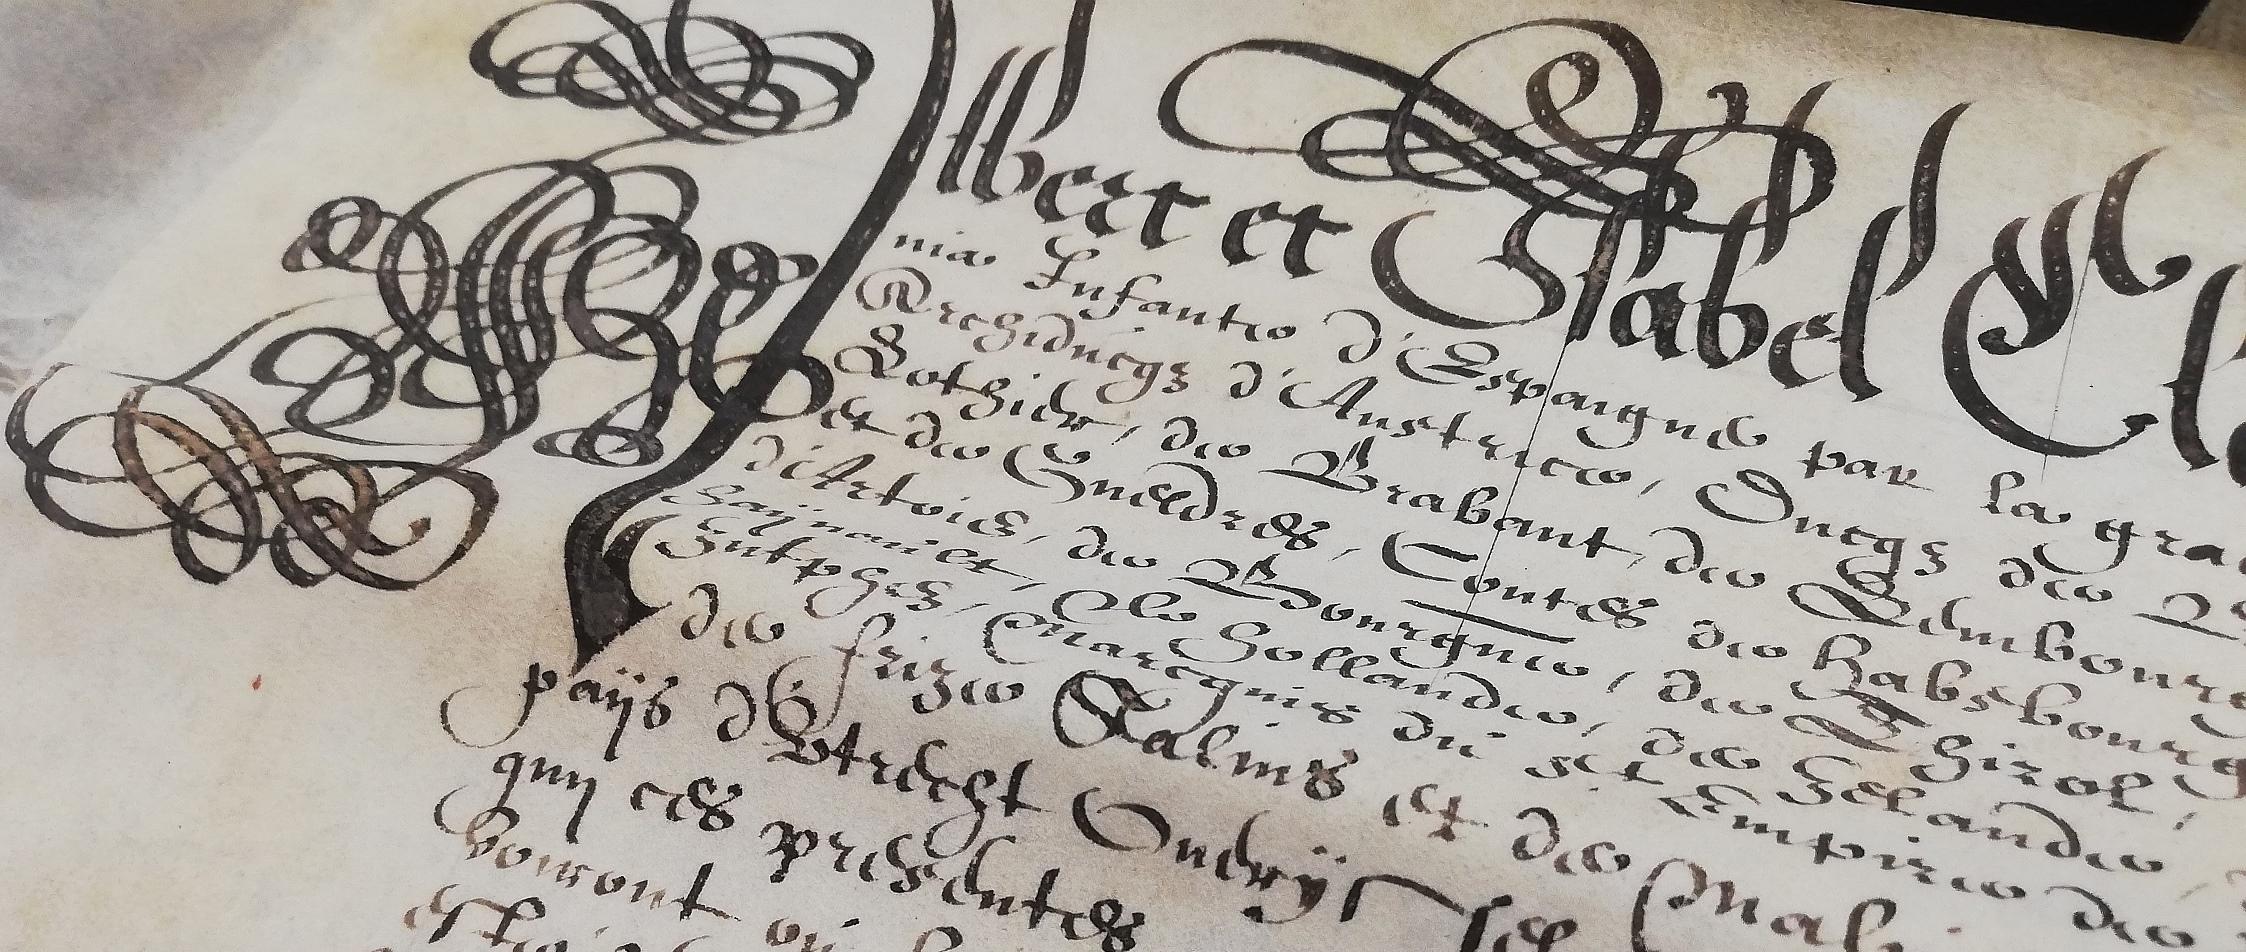 Albert et Isabel Cla
nia Infante d'Espaigne par la gra
Archiducqz d'Austrice, Ducqz de
Lothier, de Brabant, de Lembourg
et de Gueldres, Contes de Habsbourg
d'Artois, de Bourgne, de Thirol,
Haÿnault, de Hollande, de Zelande,
Zutphez, Marcquis du sct Empire de
de frize Salins et de Mali
paÿs d'Vtrecht Overÿssel
quy ces presentes
voiront